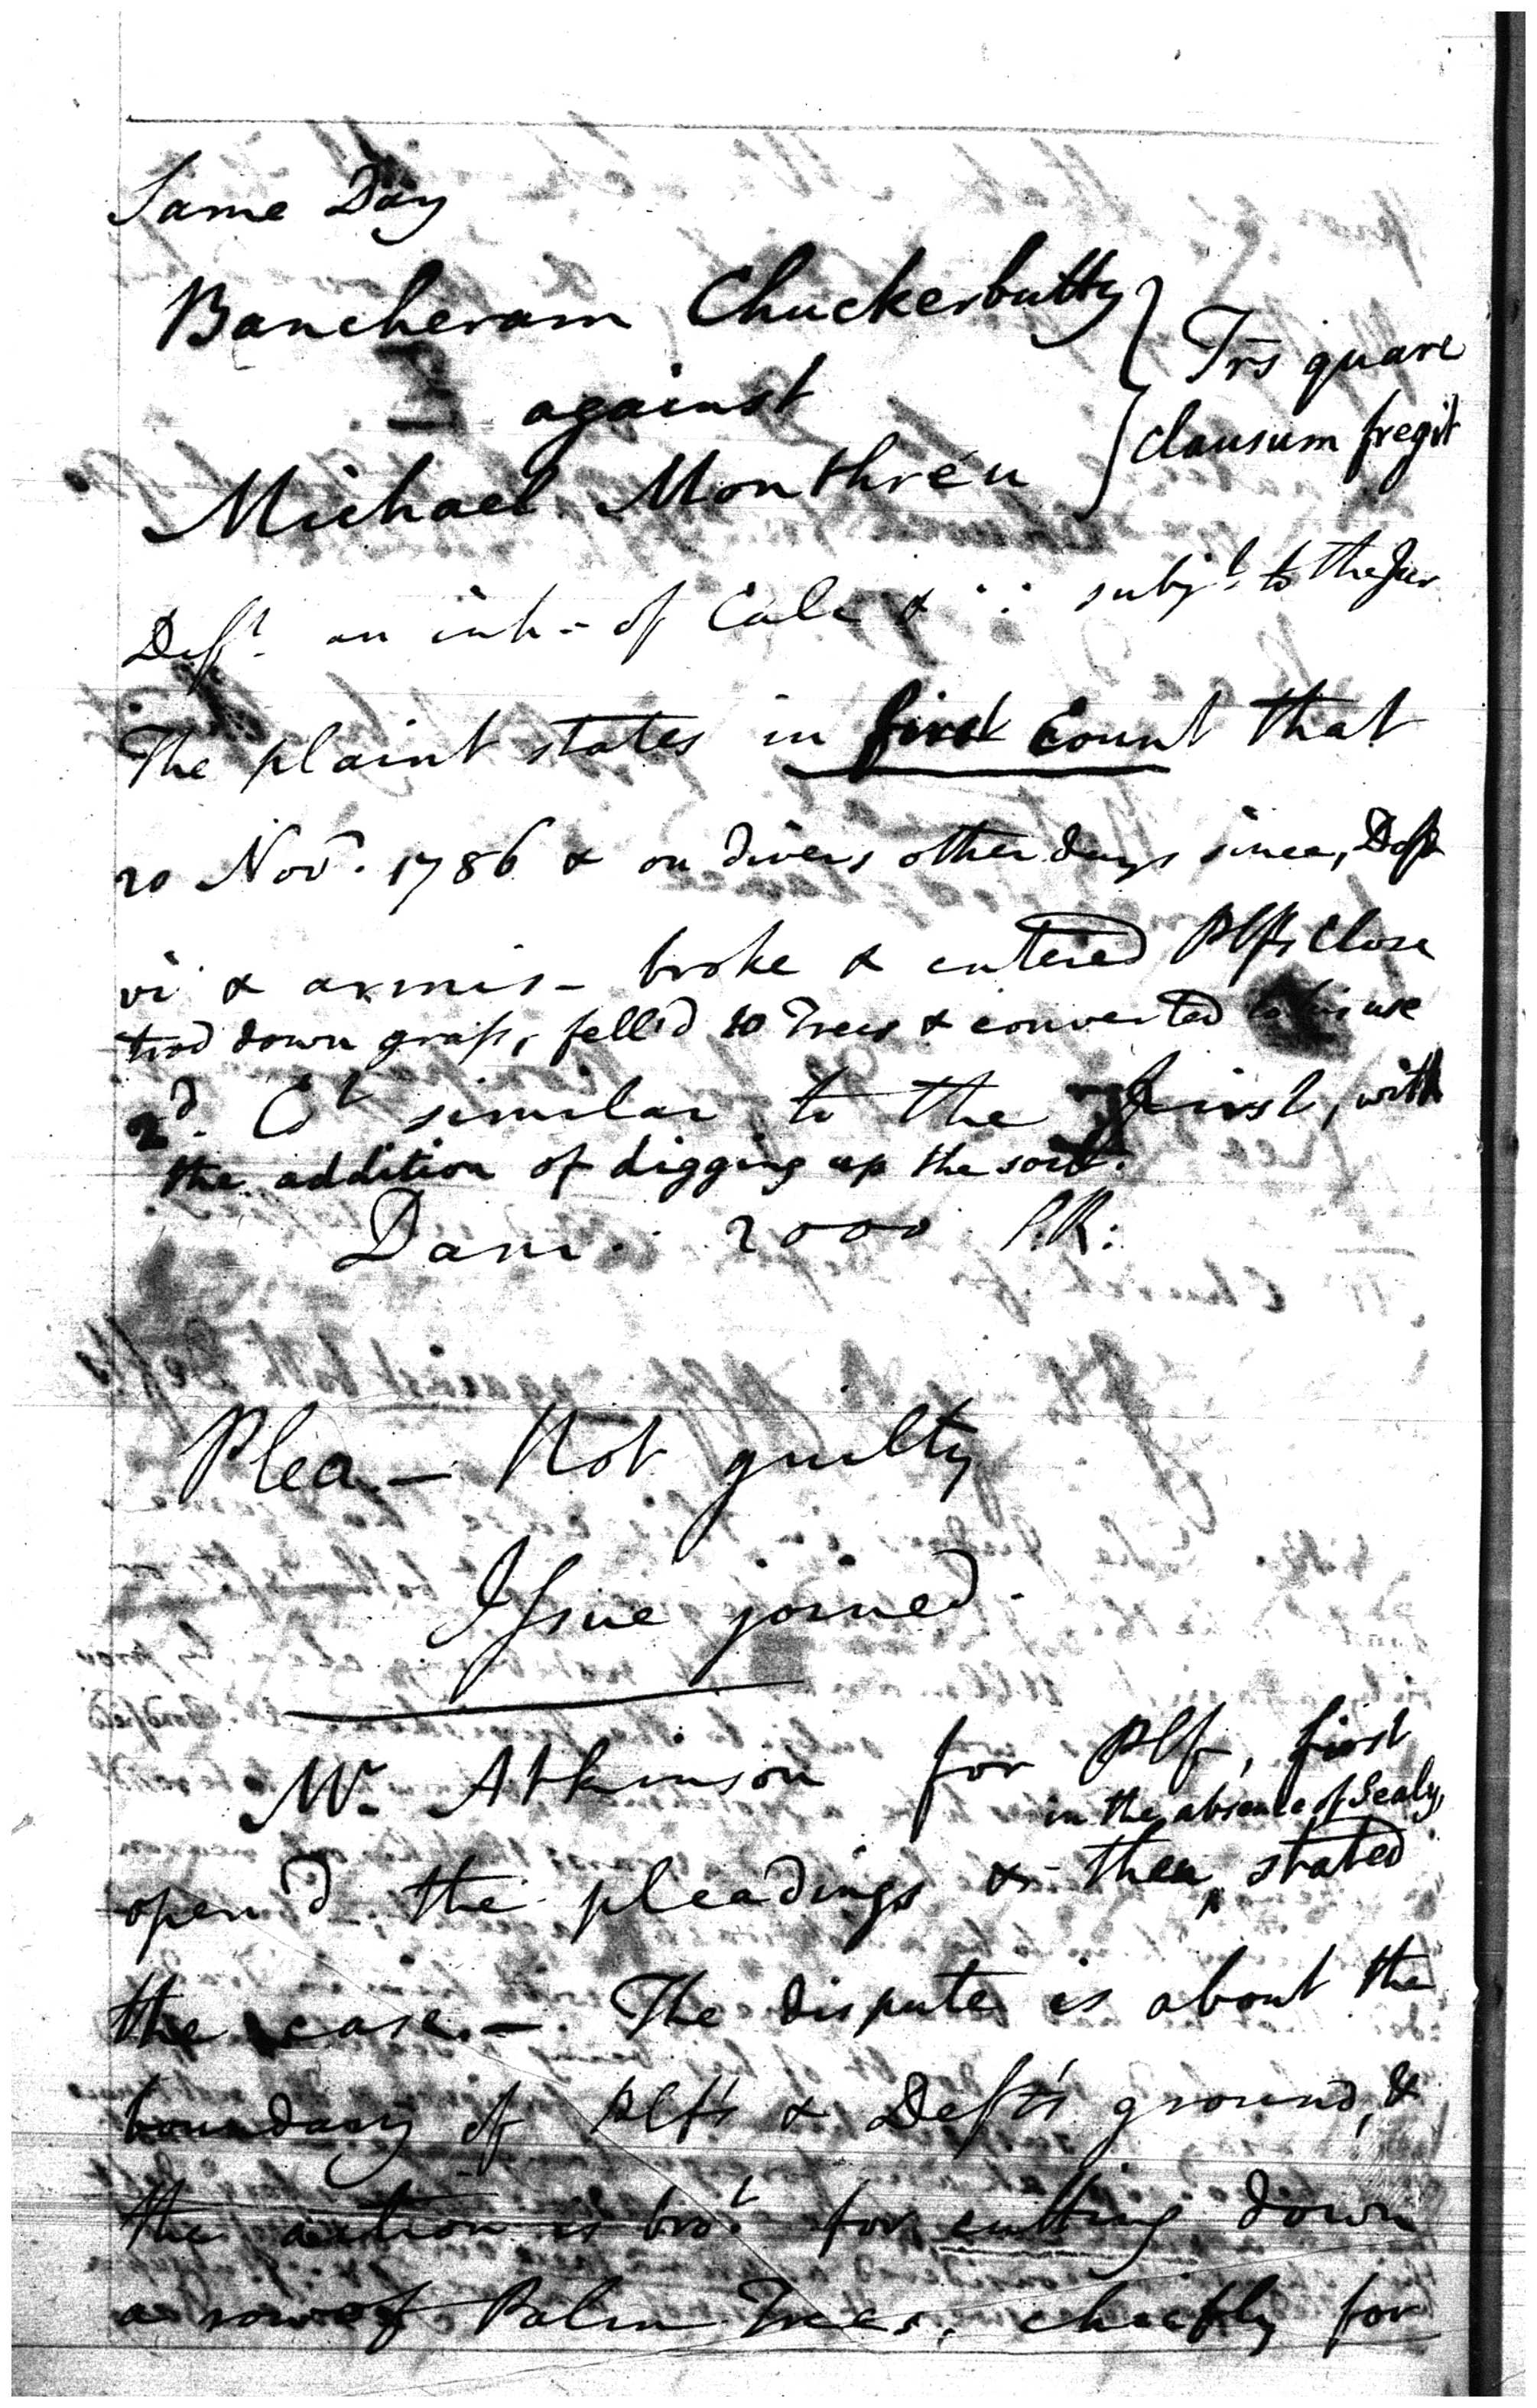 Same Day
Bancheram Chuckerbutty
against
Michael Monthréu
Trs quare
clausum fregit
Deft. an inh- of Calc & : : subjt. to the Jur
The plaint states in first Count that
20 Nov. 1786 & on divers other days since, Deft
vi & armis - broke & entered Plfs Close
trod down grass, fell'd 10 Trees & converted to his use
2d. Ct similar to the First, with
the addition of digging up the soil.
Dam. 2000 P.R:
Plea - Not guilty
Issue joined.
Mr. Atkinson for Plf, first
in the absence of Sealy,
open'd the pleadings & then ‸ stated
the case. - The dispute is about the
boundary of Plf's & Deft's ground, &
the action is bro.t for cutting down
a row of Palm Trees, chiefly for